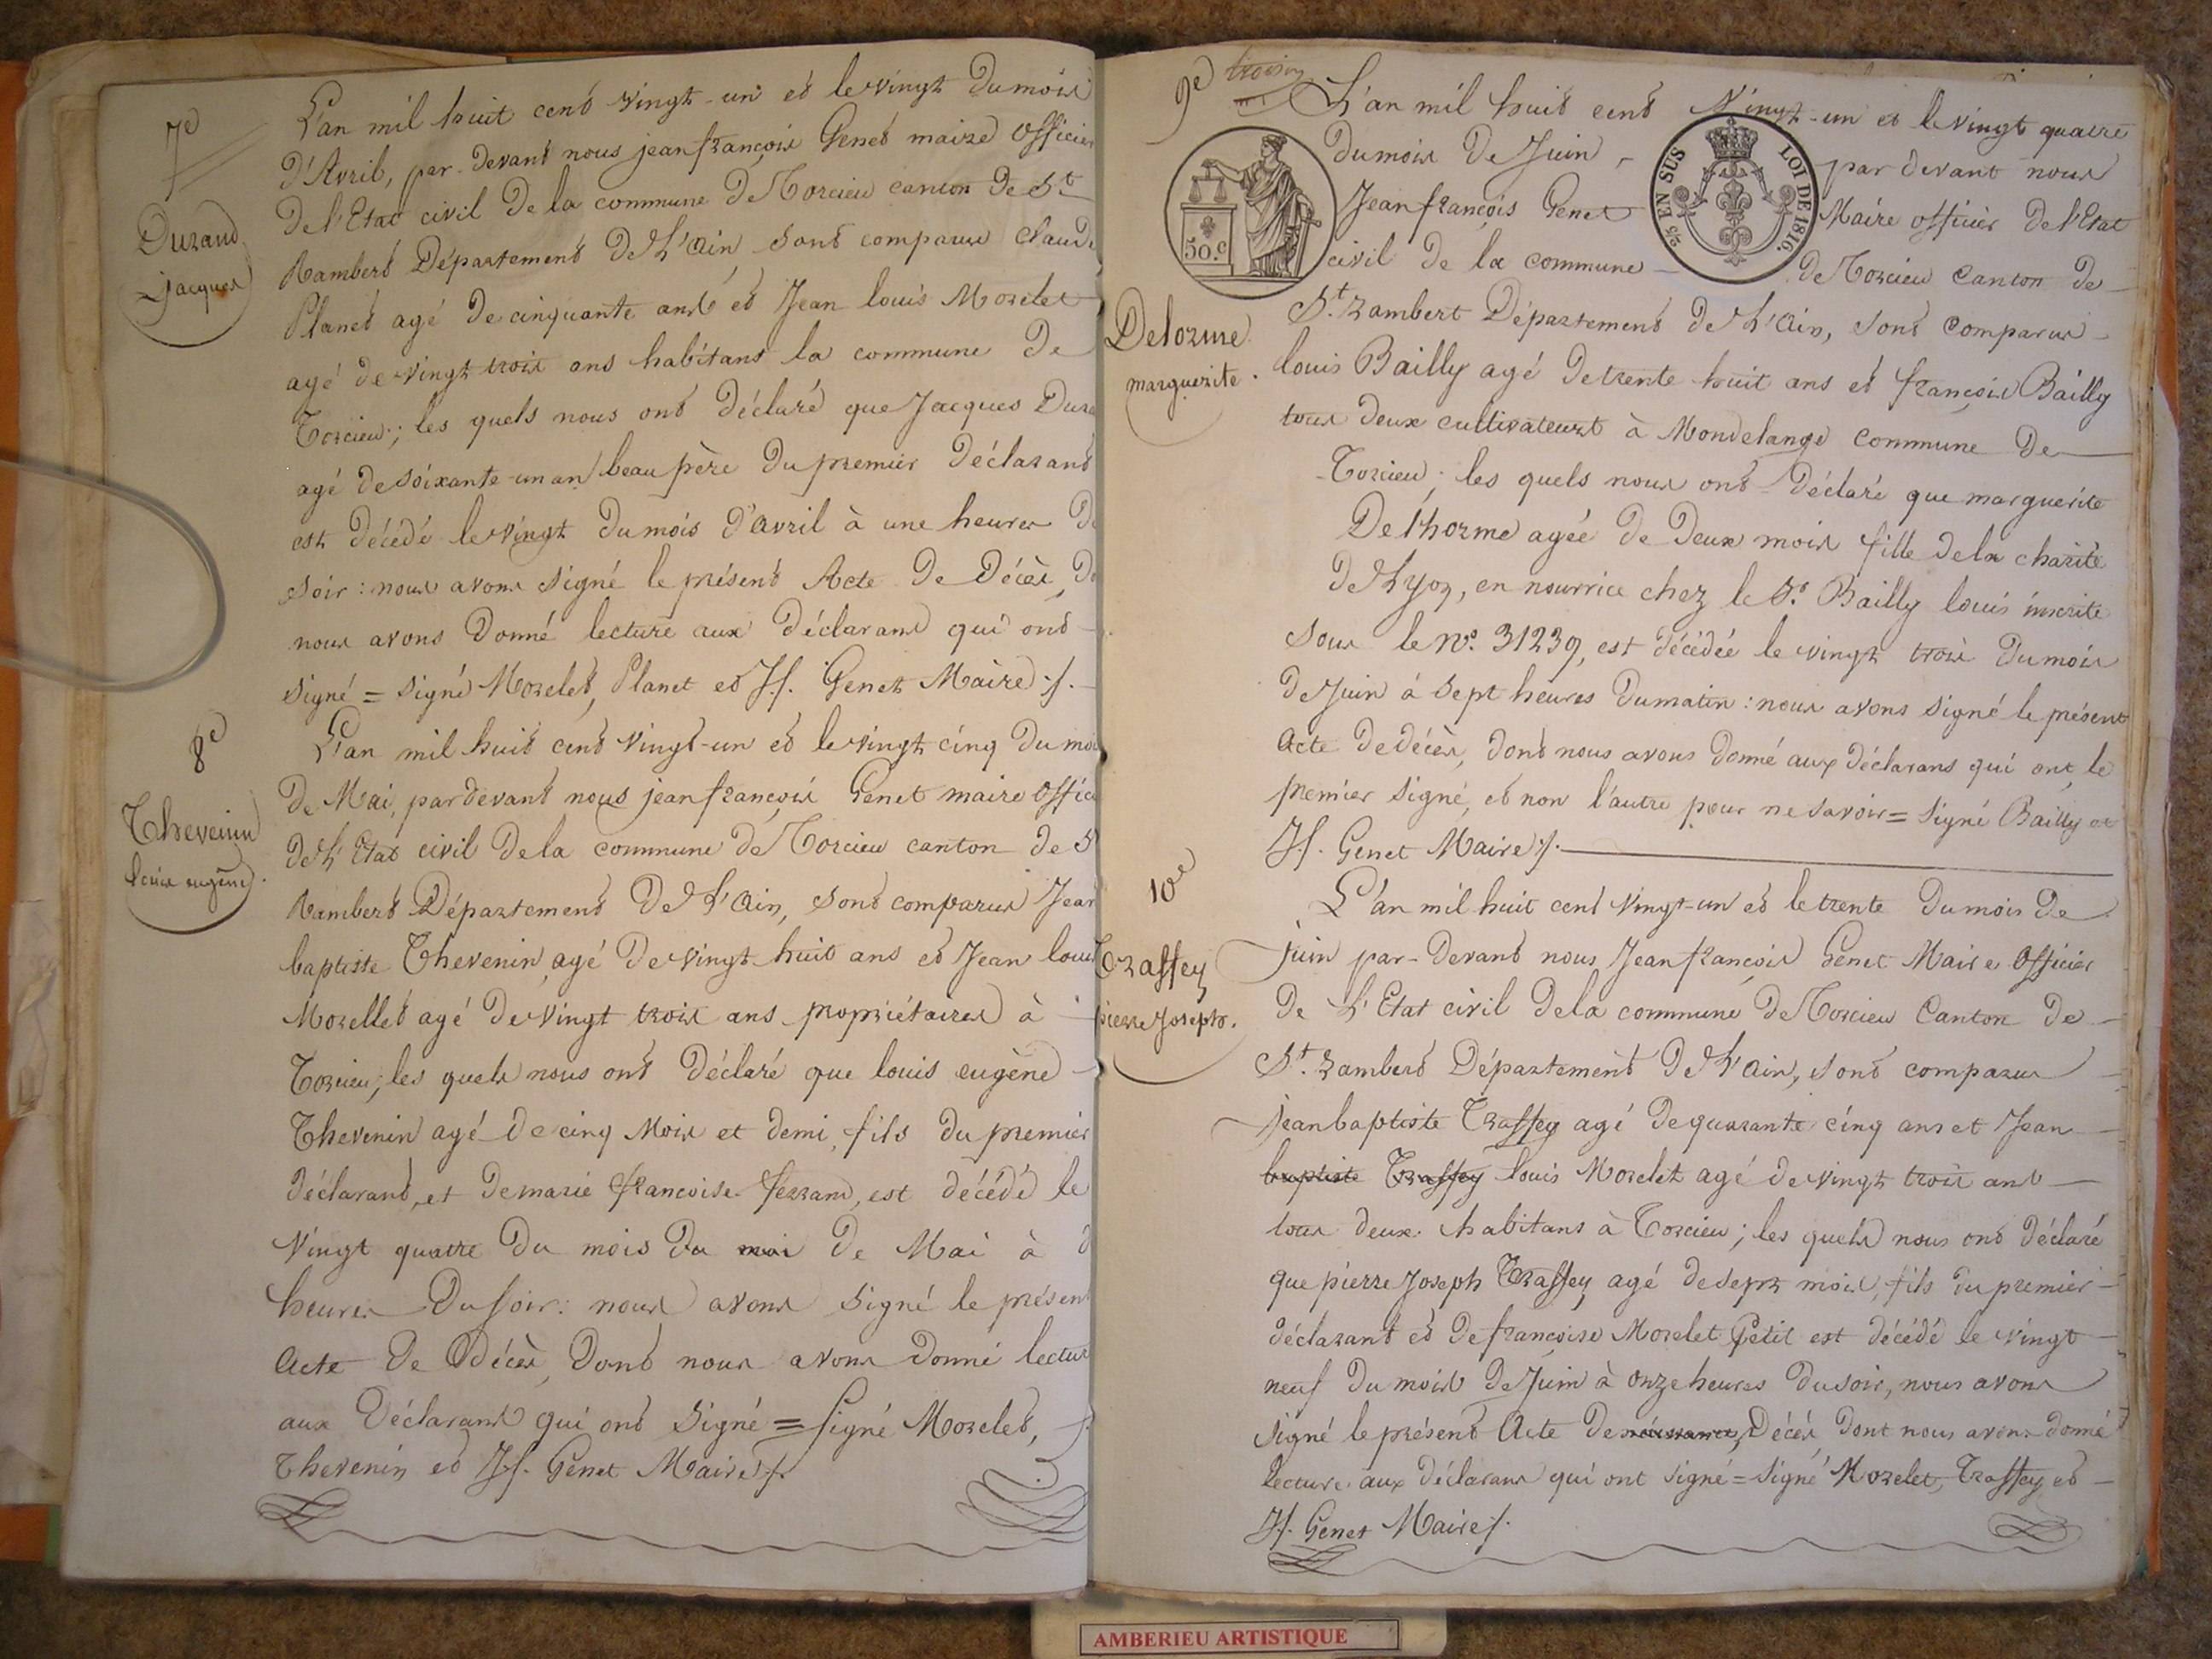 7e
Durand
jacques
L'an mil huit cent vingt-un et le vingt du mois
d'Avril, par-devant nous jean françois Genet maire officier
de l'Etat civil de la commune de Torcieu canton de St
Rambert Département de L'Ain sont comparus claude
Planet agé de cinquante ans et Jean louis Morelet
agé de vingt trois ans habitans la commune de
Torcieu; les quels nous ont déclaré que Jacques Dura
agé de soixante-un an beau père du premier déclarant
est décédé le vingt du mois d'avril à une heures de
soir: nous avons signé le présent Acte de Décès, do
nous avons donné lecture aux déclarans qui ont
signé = signé Morelet, Planet et Jf. Genet Maire /.
8e
Thevenin
louis eugène.
L'an mil huit cent vingt-un et le vingt cinq du moi
de Mai, par devant nous jean françois Genet maire offici
de L'Etat civil de la commune de Torcieu canton de S
Rambert Département de L'Ain, sont comparus Jean
baptiste Thevenin, agé de vingt-huit ans et Jean loui
Morellet agé de vingt trois ans propriétaires à
Torcieu; les quels nous ont déclaré que louis eugène
Thevenin agé de cinq Mois et demi, fils du premier
déclarant, et de marie françoise ferrand, est décédé le
vingt quatre du mois du mai de Mai à d
heures du soir: nous avons signé le présent
Acte de décès, dont nous avons donné lectur
aux Déclarans qui ont signé = signé Morelet,
Thevenin et Jf. Genet Maire /.
9e
50.c
EN SUS LOI DE 1816.
Delorme
marguerite.
L'an mil huit cent vingt-un et le vingt quatre
du mois de Juin, par devant nous
Jean françois Genet Maire officier de l'Etat
civil de la commune de Torcieu Canton de
St. Rambert Département de L'Ain, sont comparus
louis Bailly agé de trente huit ans et françois Bailly
tous deux cultivateurs à Mondelange commune de
Torcieu; les quels nous ont déclaré que marguerite
Delhorme agée de deux mois fille de la charité
de Lyon, en nourrice chez le Sr. Bailly louis inscrite
sous le No. 31239, est décédée le vingt trois du mois
de Juin à sept heures du matin: nous avons signé le présent
Acte de décès, dont nous avons donné aux déclarans qui ont, le
premier signé, et non l'autre pour ne savoir = signé Bailly et
Jf. Genet Maire /.
10e
Traffey
pierre Joseph.
L'an mil huit cent vingt-un et le trente du mois de
juin par-devant nous Jean françois Genet Maire officier
de L'Etat civil de la commune de Torcieu Canton de
St. Rambert Département de L'Ain, sont comparus
jean baptiste Traffey agé de quarante cinq ans et Jean
baptiste Traffey louis Morelet agé de vingt trois ans
tous deux habitans à Torcieu; les quels nous ont déclaré
que pierre Joseph Traffey agé de sept mois, fils du premier
déclarant et de françoise Morelet Petit est décédé le vingt
neuf du mois de Juin à onze heures du soir, nous avons
signé le présent Acte de naissance, Décès dont nous avons donné
lecture aux déclarans qui ont signé = signé Morelet, Traffey et
Jf. Genet Maire /.
AMBERIEU ARTISTIQUE